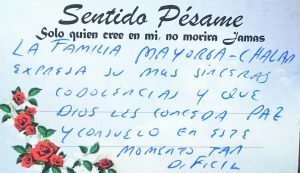 Sentido Pésame
Solo quien cree en mi, no morira Jamas
LA FAMILIA MAYORGA-CHALAN
EXPRESA SU MAS SINCERAS
CODOLENCIAS Y QUE
DIOS LES CONCEDA PAZ
Y CONSUELO EN ESTE
MOMENTO TAN
DIFICIL